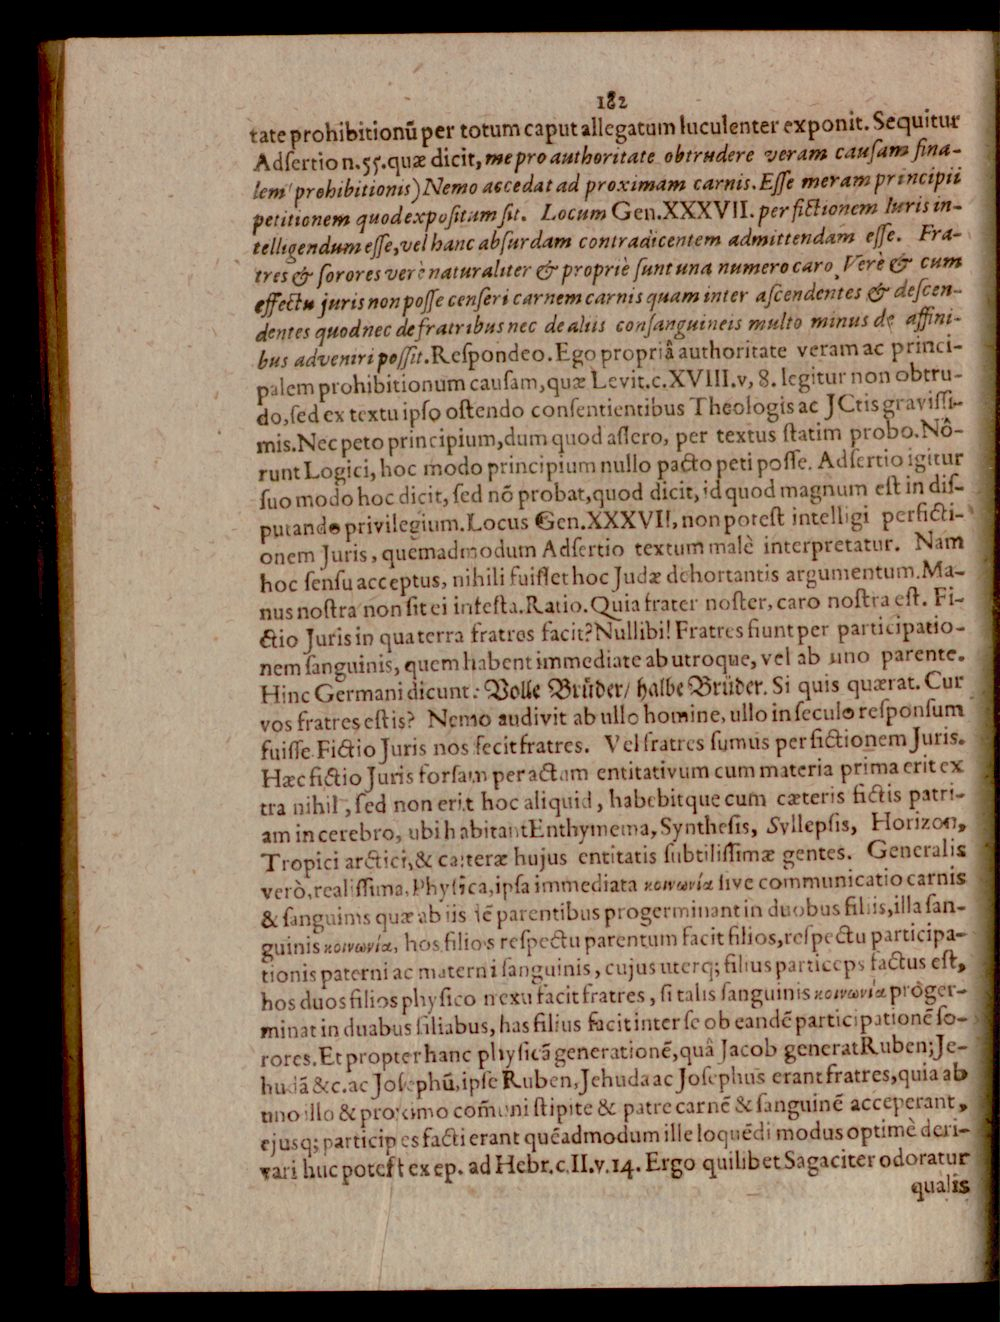 182
tate prohibitionũ per totum caput allegatum luculenter exponit. Sequitur
Adſertio n.55.quæ dicit, me pro authoritate obtrudere veram cauſam fina-
lem (prohibitionis) Nemo accedat ad proximam carnis. Eſſe meram principii
petitionem quod expoſitum ſit. Locum Gen.XXXVII. per fictionem Iuris in-
telligendum eſſe, vel hanc abſurdam contradicentem admittendam eſſe. Fra-
tres & ſorores verè naturaliter & propriè ſunt una numero caro, Verè & cum
effectu juris non poſſe cenſeri carnem carnis quam inter aſcendentes & deſcen-
dentes quod nec de fratribus nec de aliis conſanguineis multo minus de affini-
bus adveniri poſſit. Reſpondeo. Ego propriâ authoritate veram ac princi-
palem prohibitionum cauſam, quæ Levit.c.XVIII.v, 8. legitur non obtru-
do, ſed ex textu ipſo oſtendo conſentientibus Theologis ac JCtis graviſſi-
mis. Nec peto principium, dum quod aſſero, per textus ſtatim probo. Nô-
runt Logici, hoc modo principium nullo pacto peti poſſe. Adſertio igitur
ſuo modo hoc dicit, ſed nõ probat, quod dicit, id quod magnum eſt in diſ-
putando privilegium. Locus Gen.XXXVII, non poteſt intelligi per ficti-
onem Juris, quemadmodum Adſertio textum malè interpretatur. Nam
hoc ſenſu acceptus, nihili fuiſſet hoc Judæ dehortantis argumentum. Ma-
nus noſtra non ſit ei infeſta. Ratio. Quia frater noſter, caro noſtra eſt. Fi-
ctio Juris in qua terra fratres facit? Nullibi! Fratres fiunt per participatio-
nem ſanguinis, quem habent immediate ab utroque, vel ab uno parente.
Hinc Germani dicunt: Volle Brüder/ halbe Brüder. Si quis quærat. Cur
vos fratres eſtis? Nemo audivit ab ullo homine, ullo in ſeculo reſponſum
fuiſſe. Fictio Juris nos fecit fratres. Vel fratres ſumus per fictionem Juris.
Hæc fictio Juris forſam per actum entitativum cum materia prima erit ex
tra nihil, ſed non erit hoc aliquid, habebitque cum cæteris fictis patri-
am in cerebro, ubi habitant Enthymema, Syntheſis, Syllepſis, Horizon,
Tropici arctici, & cæteræ hujus entitatis ſubtiliſſimæ gentes. Generalis
verò, realiſſima, Phyſica, ipſa immediata κοινωνία ſive communicatio carnis
& ſanguinis quæ ab iis iẽ parentibus progerminant in duobus filiis, illa ſan-
guinis κοινωνία, hos filios reſpectu parentum facit filios, reſpectu participa-
tionis paterni ac materni ſanguinis, cujus uterq; filius particeps factus eſt,
hos duos filios phyſico nexu facit fratres, ſi talis ſanguinis κοινωνία proger-
minat in duabus filiabus, has filius facit inter ſe ob eandẽ participationẽ ſo-
rores. Et propter hanc phyſicã generationẽ, quâ Jacob generat Ruben; Je-
hudã &c. ac Joſephũ, ipſe Ruben, Jehuda ac Joſephus erant fratres, quia ab
uno illo & proximo com̃uni ſtipite & patre carnẽ & ſanguinẽ acceperant,
ejusq; participes facti erant quẽadmodum ille loquẽdi modus optimè deri-
vari huc poteſt ex ep. ad Hebr.c.II.v.14. Ergo quilibet Sagaciter odoratur
qualis